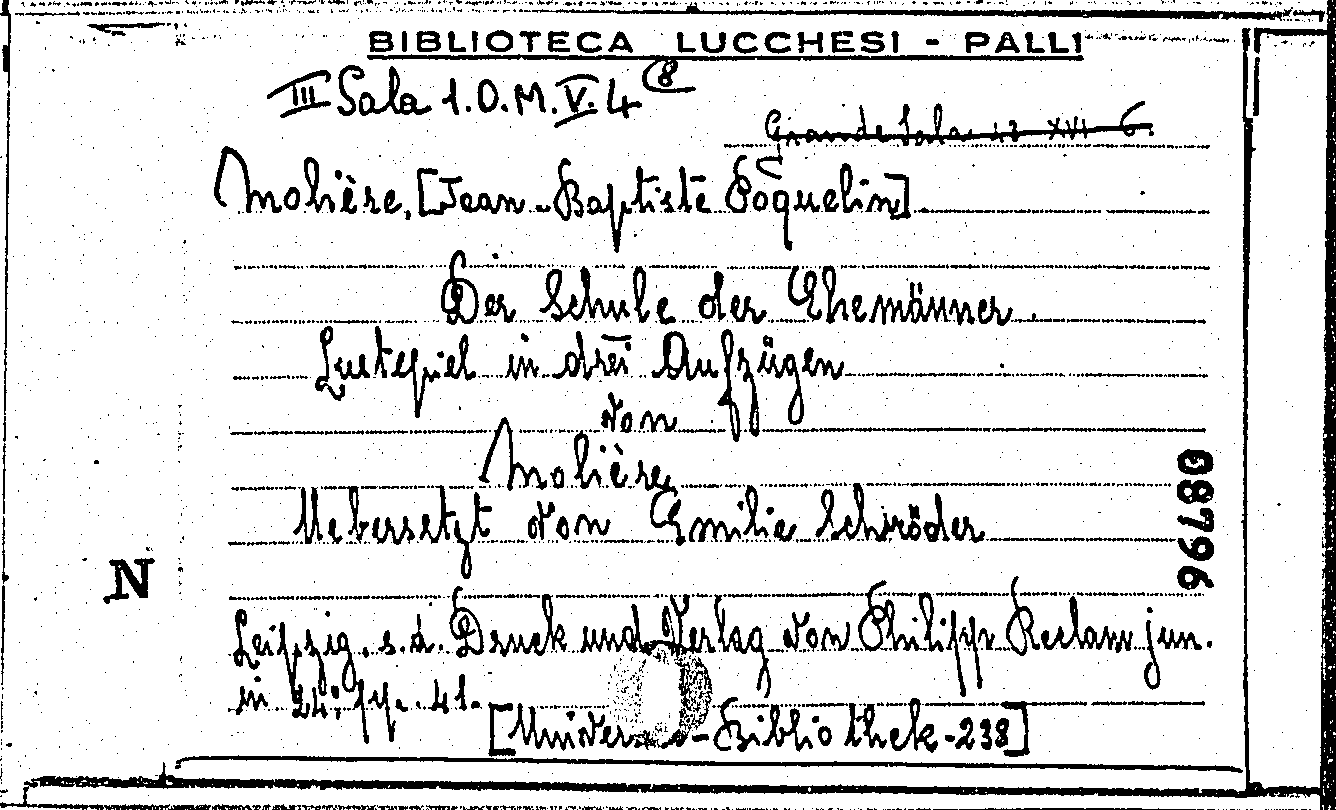 BIBLIOTECA LUCCHESI - PALLI
III Sala 1.O.M.V.4 (8
Grande Sala 43 XVI 6.
Molière, [Jean-Baptiste Poquelin].
Der Schule der Ehemänner.
Lustspiel in drei Aufzügen
von
Molière
Uebersetzt von Emilie Schröder
08796
N
Leipzig. s.d. Druck und Verlag von Philipp Reclam jun.
in 24; pp. 41.
[Univer -Bibliothek-238]